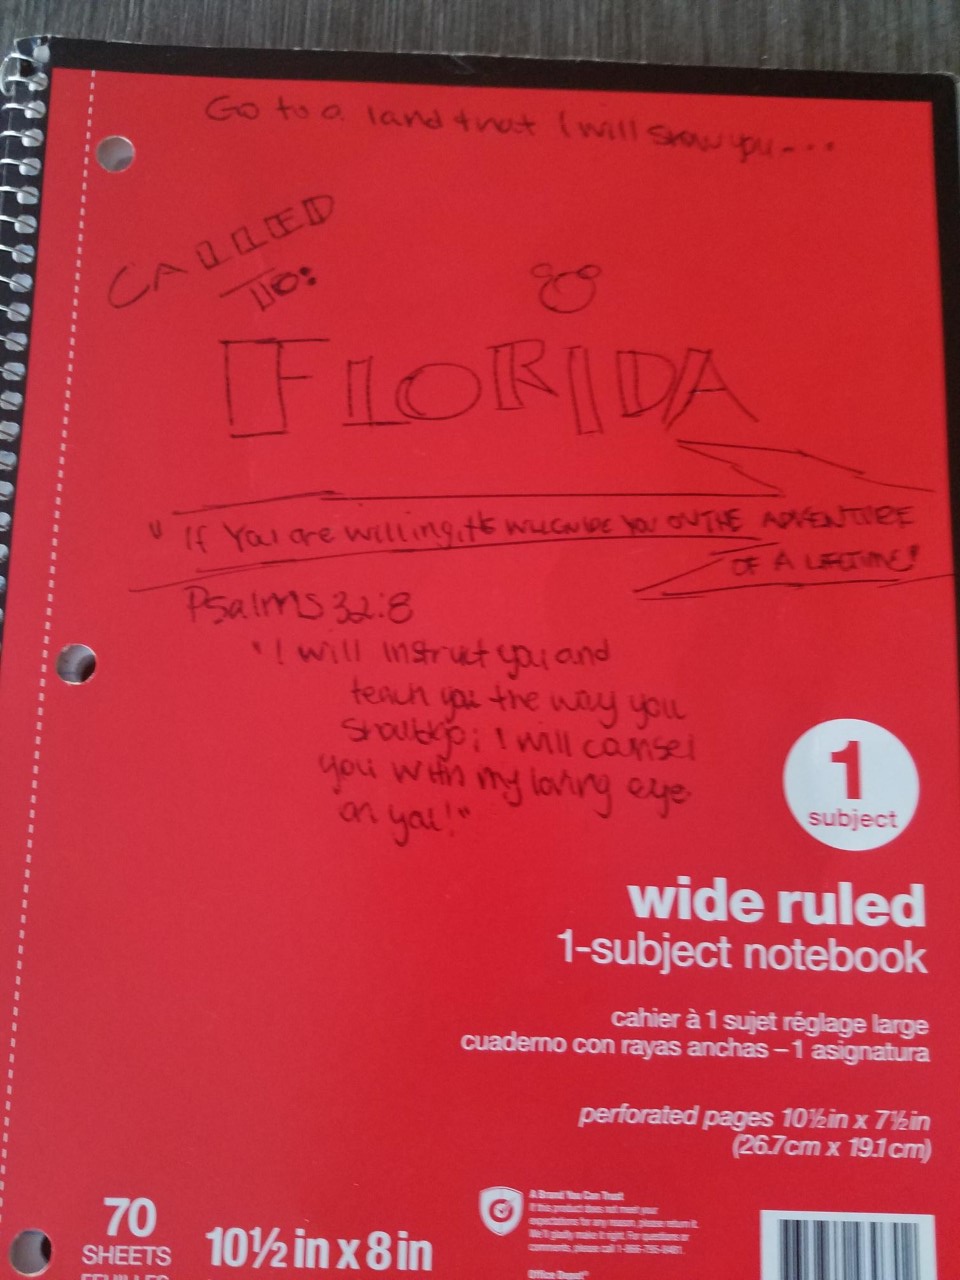 Go to a land that I will show you....
CALLED
TO:
FLORIDA
"If You are willing, He WILL GUIDE YOU ON THE ADVENTURE
OF A LIFETIME!
Psalms 32:8
"I will instruct you and
teach you the way you
should go; I will counsel
you with my loving eye
on you!"
1
subject
wide ruled
1-subject notebook
cahier à 1 sujet réglage large
cuaderno con rayas anchas – 1 asignatura
perforated pages 10½in x 7½in
(26.7cm x 19.1cm)
70
SHEETS
FEUILLES
10½ in x 8 in
A Brand You Can Trust
If this product does not meet your
expectations for any reason, please return it.
We'll gladly make it right. For questions or
comments, please call
Office Depot